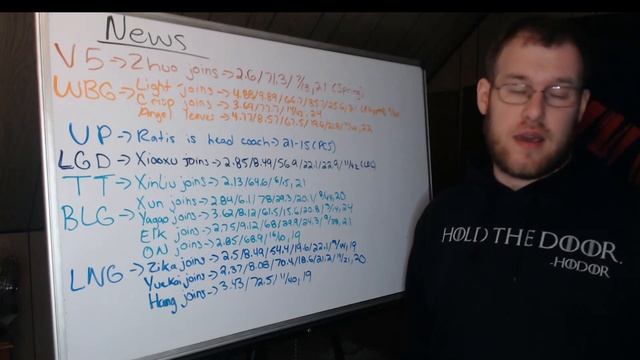 News
V5 → Zhuo joins → 2.6/71.3/ 7/13, 21 (Spring)
WBG → Light joins → 4.88/9.89/66.7/35.7/25.6/
Crisp joins → 3.69/77.7/ 24
Angel leaves → 4.77/8.57/67.5/19.6/ 22
UP → Ratis is head coach → 21-15 (PCS)
LGD → Xiaoxu joins → 2.85/8.49/56.9/22.1/22.9/ 11/42 (LDL)
TT → XinLiu joins → 2.13/64.6/ 6/15, 21
BLG → Xun joins → 2.84/6.1/78/29.3/20.1/ 20
Yagao joins → 3.62/8.12/61.5/15.6/20.8/ 24
Elk joins → 2.75/9.12/68/29.9/24.3/ 21
ON joins → 2.85/68.9/ 16/60, 19
LNG → Zika joins → 2.5/8.49/54.4/19.6/22.1/ 19
Yuekai joins → 2.37/8.08/70.4/18.6/21.2/ 20
Hang joins → 3.43/72.5/ 11/40, 19
HOLD THE DOOR.
-HODOR